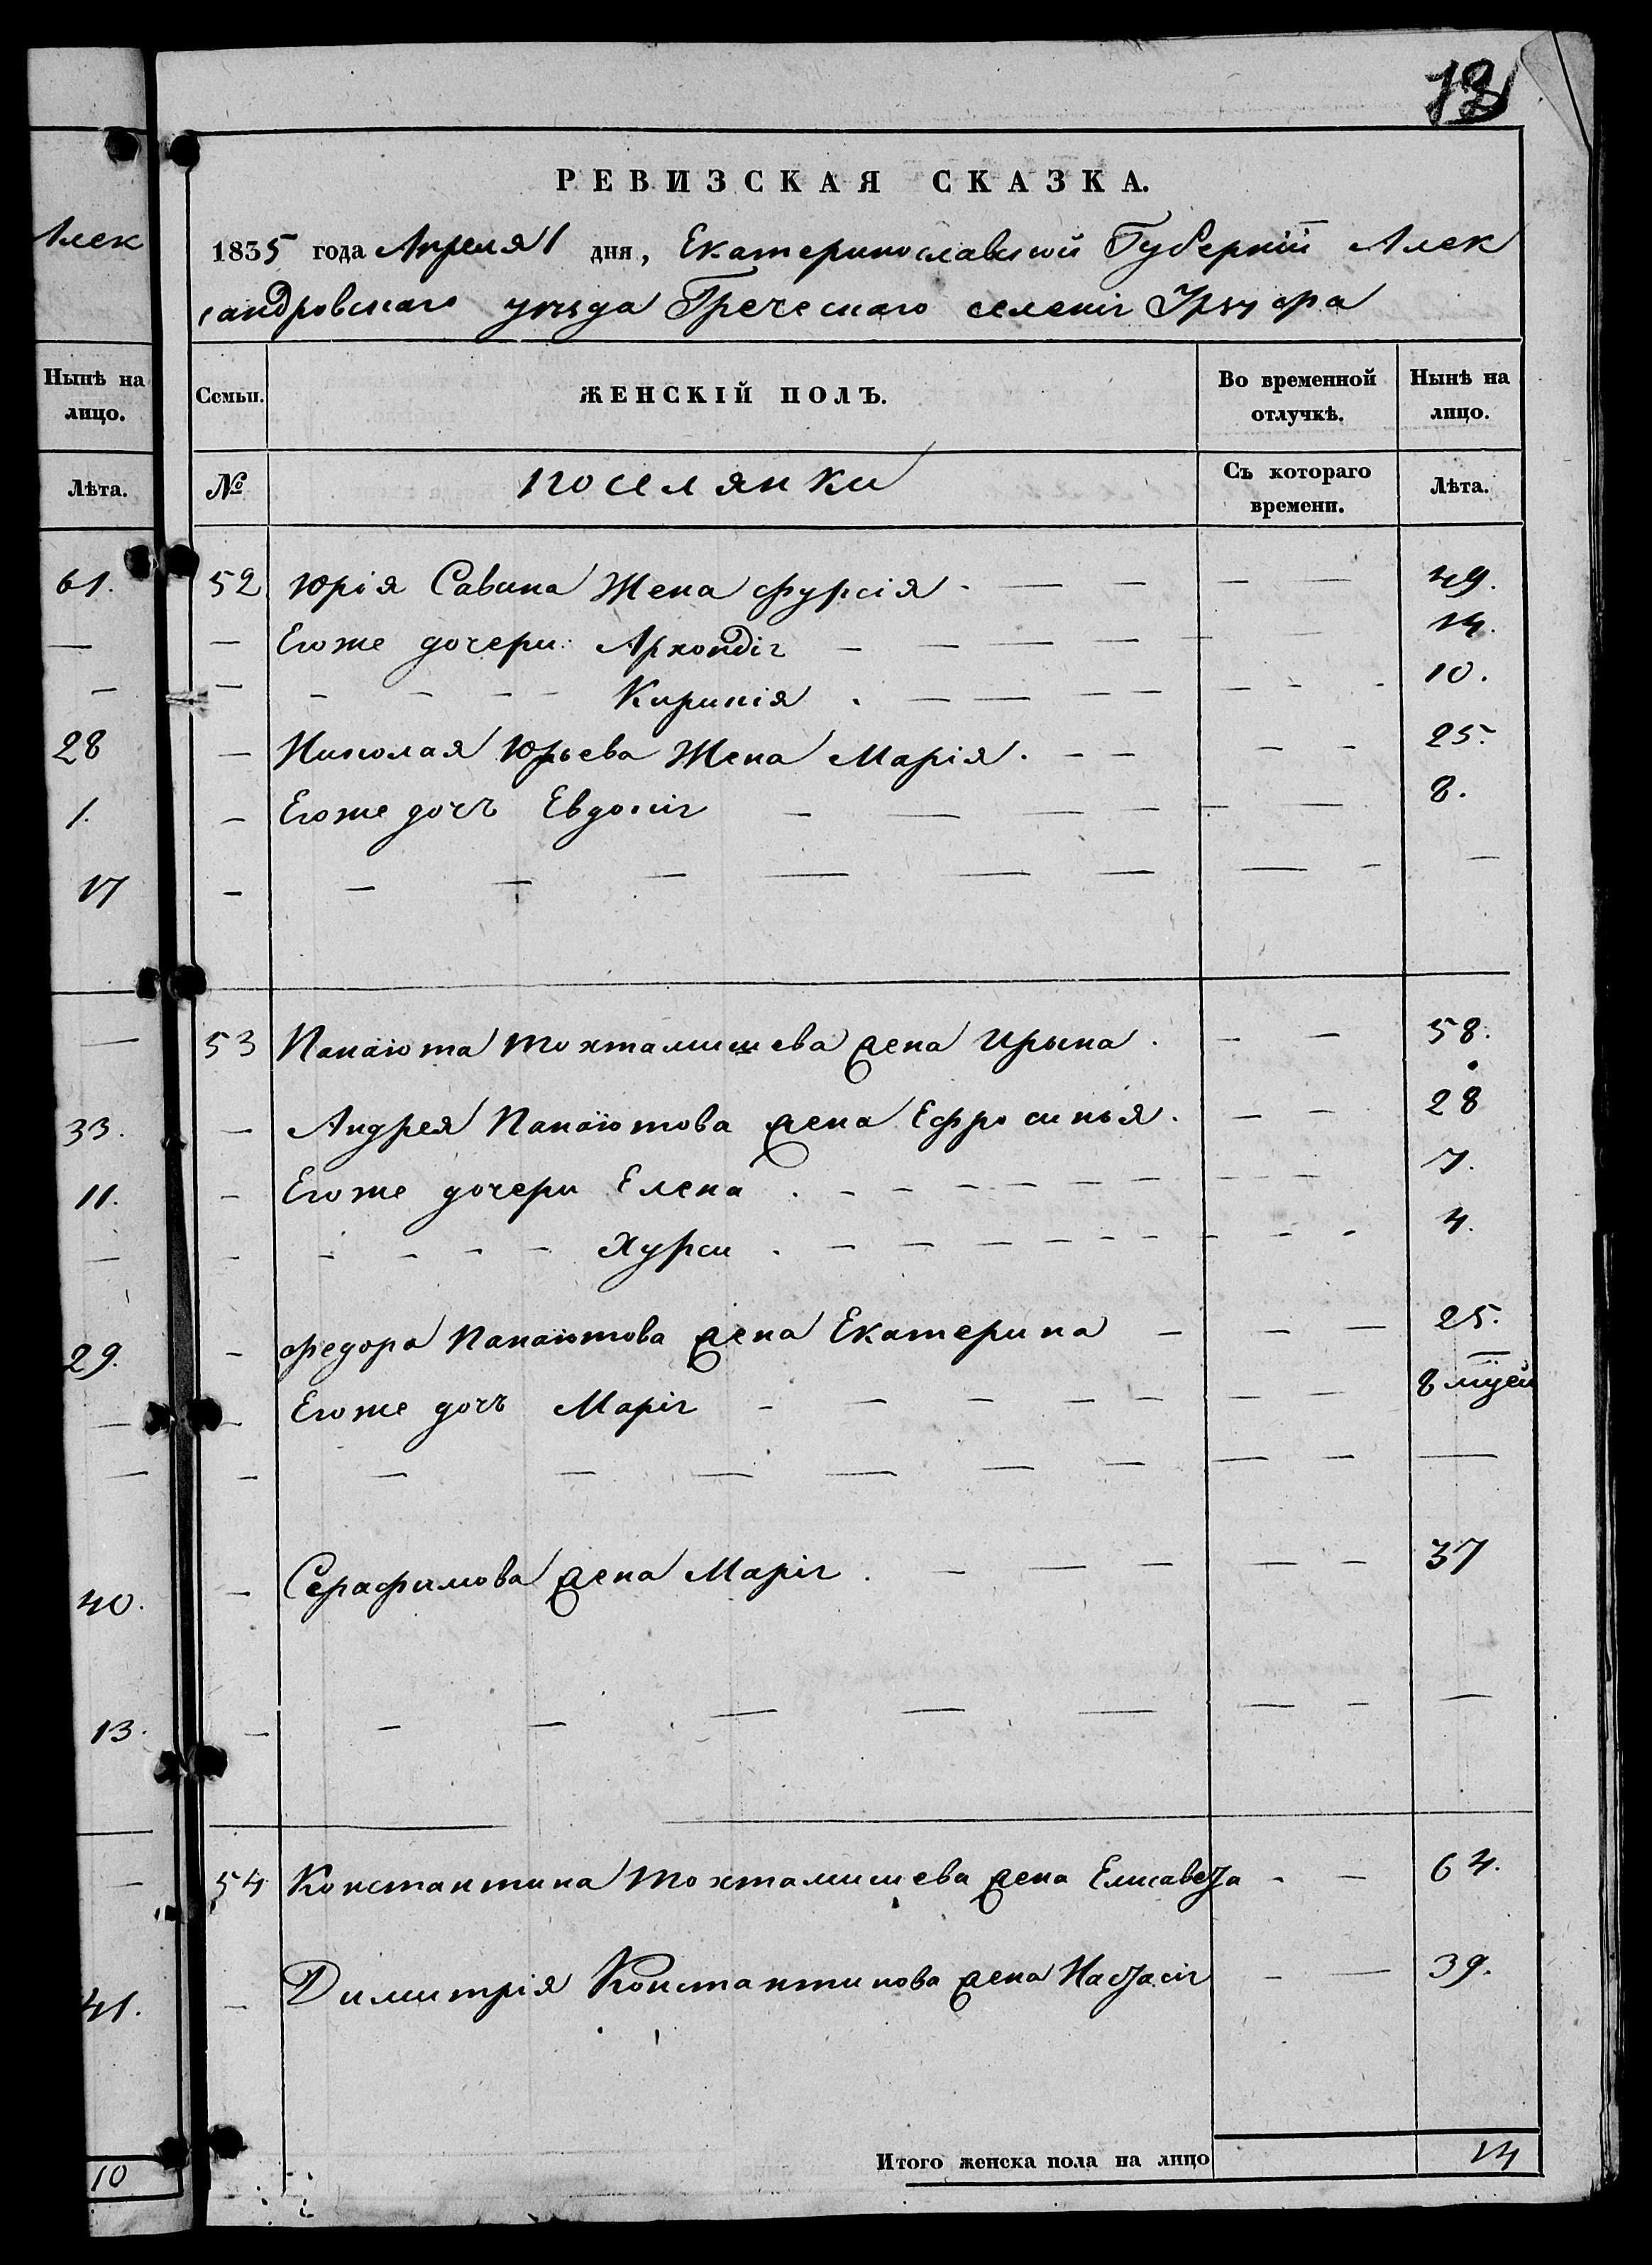 Алек
Нынѣ на
лицо.
Лѣта.
61.
—
—
28
1.
17
—
33.
11.
—
29.
—
—
40.
13.
—
41.
10
РЕВИЗСКАЯ СКАЗКА.
1835 года Апреля 1 дня, Екатеринославской Губерніи Алек
сандровскаго уѣзда Греческаго селенія Урзуфа
Семьи. ЖЕНСКІЙ ПОЛЪ. Во временной отлучкѣ. Нынѣ на лицо.
№ поселянки Съ котораго времени. Лѣта.
52 Юрія Савина Жена Фурсія - — — — — 49.
— Егоже дочери: Архондія — — — — — — 14.
— — — — — Кирикія . — — — — — - - 10.
— Николая Юрьева Жена Марія . — — — — 25.
— Егоже дочь Евдокія — — — — — — 8.
— — — — — — — — — —
53 Панаіота Тохтамишева жена Ирына . — — 58.
— Андрея Панаіотова жена Ефросинья . — — 28
— Егоже дочери Елена . — — — — — — — — 7.
— — — — — Хурси . — — — — — — — — — 4.
— Федора Панаіотова жена Екатерина — — — 25.
— Егоже дочь Марія — — — — — — — 8 мцей
— — — — — — — — — —
— Серафимова жена Марія . — — — — — 37
— — — — — — — — —
54 Константина Тохтамишева жена Елисавета - — 64.
— Димитрія Константинова жена Настасія — — 39.
Итого женска пола на лицо 14